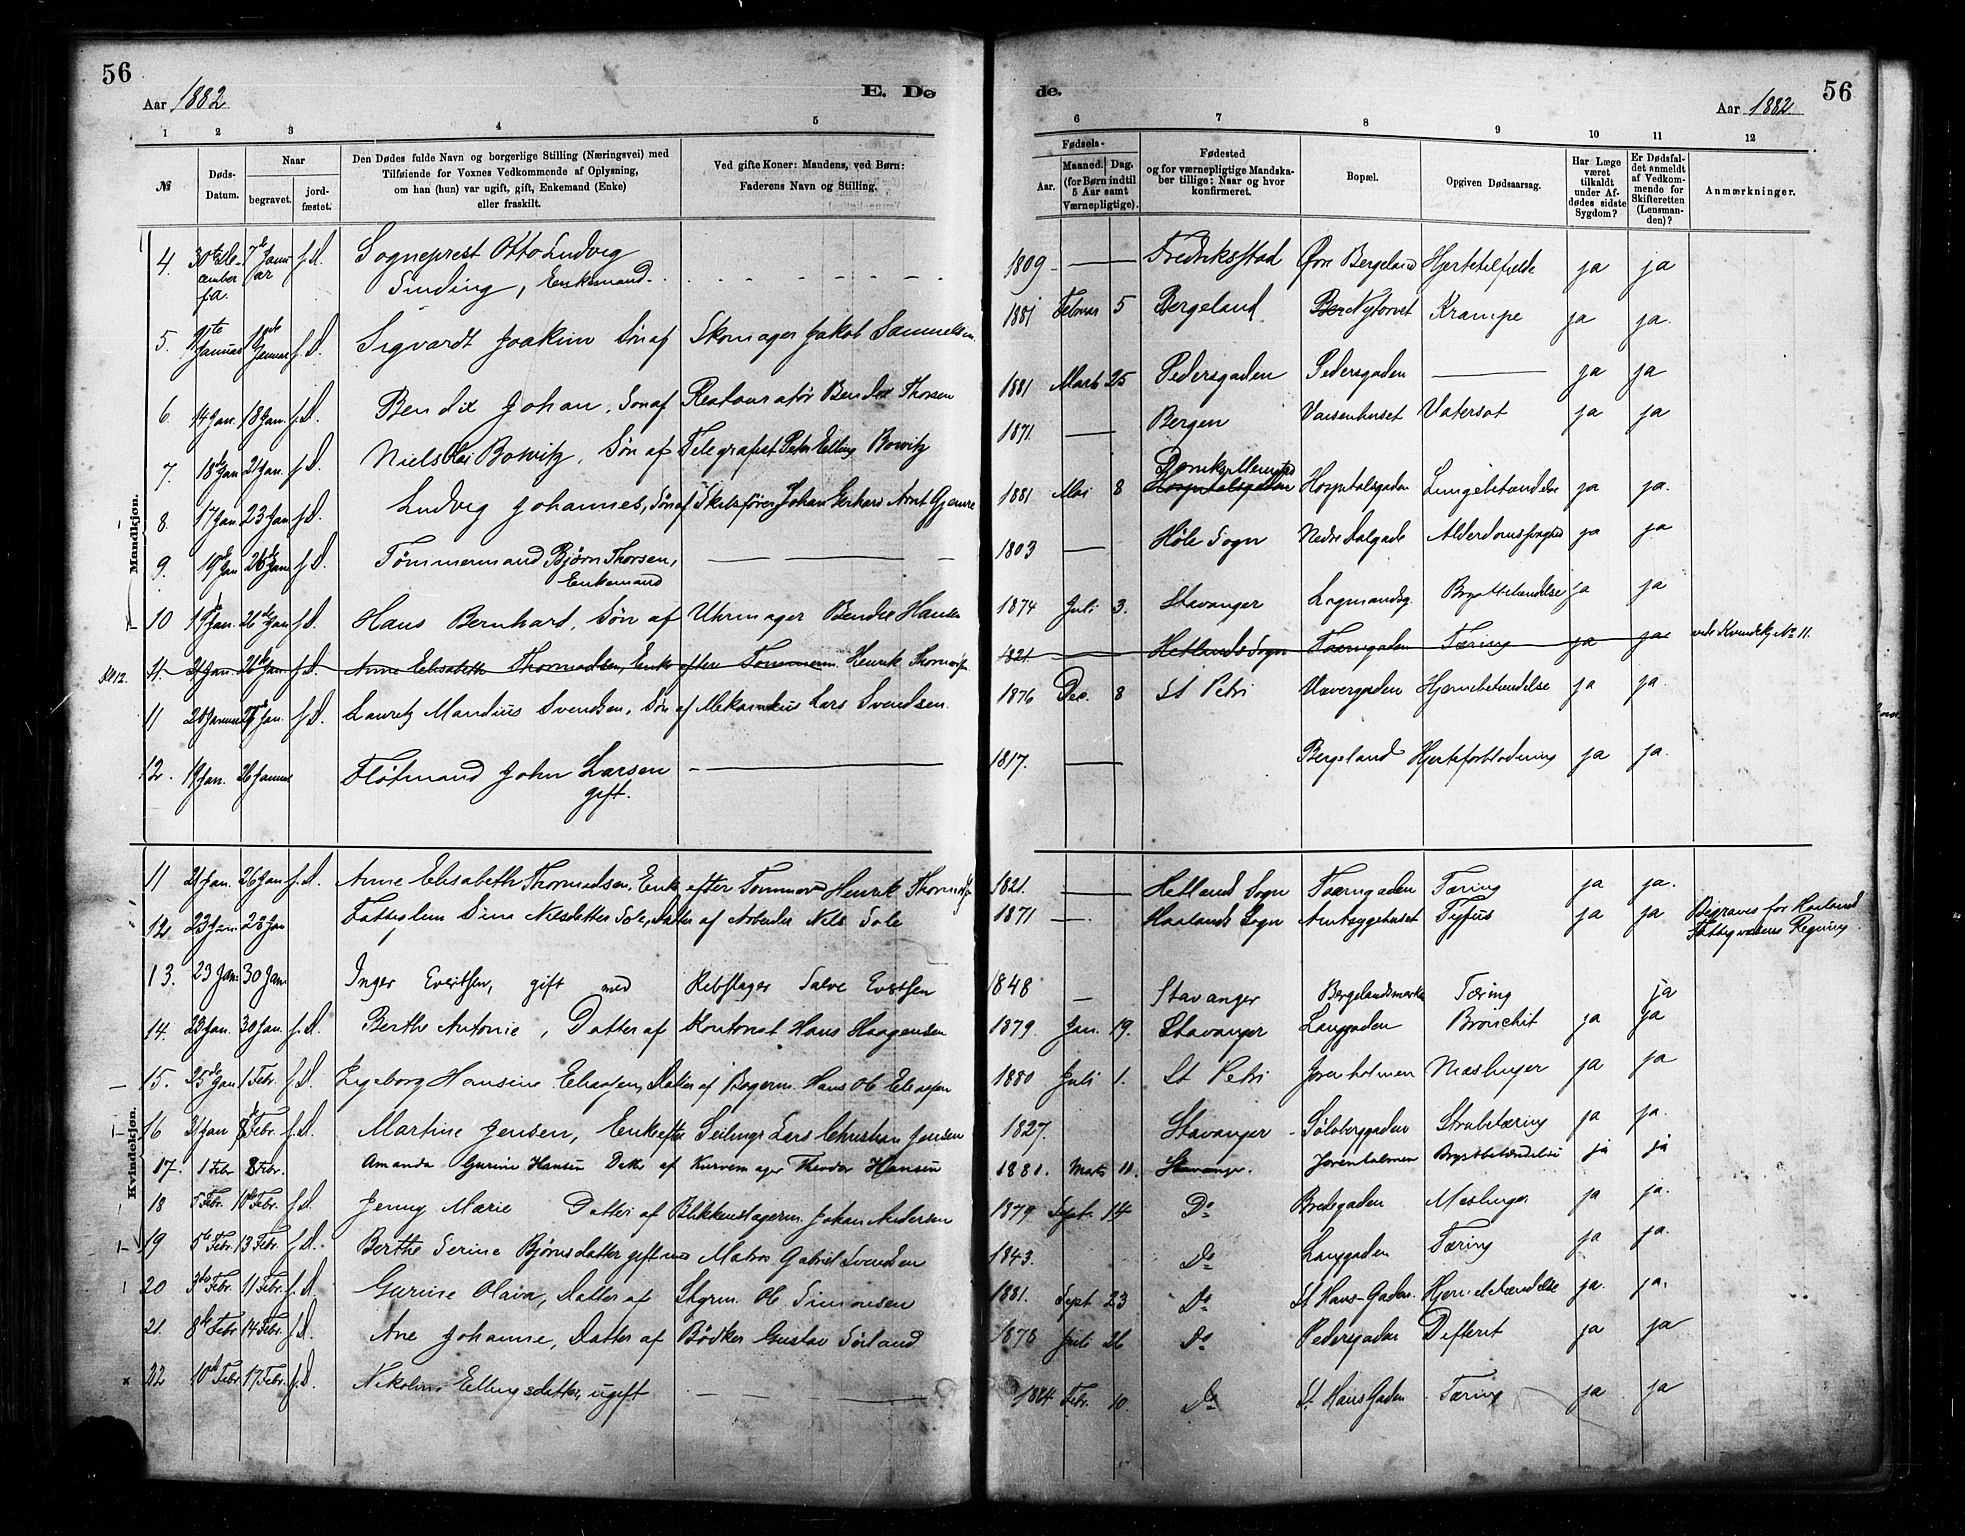 56
Aar 1882
E. Dø
de.
56
Aar 1882
1 2 3 4 5 6 7 8 9 10 11 12
№
Døds-Datum.
Naar
begravet.
jord-fæstet.
Den Dødes fulde Navn og borgerlige Stilling (Næringsvei) med
Tilføiende for Voxnes Vedkommende af Oplysning,
om han (hun) var ugift, gift, Enkemand (Enke)
eller fraskilt.
Ved gifte Koner: Mandens, ved Børn:
Faderens Navn og Stilling.
Fødsels-
Aar.
Maaned. Dag.
(for Børn indtil
5 Aar samt
Værnepligtige).
Fødested
og for værnepligtige Mandska-
ber tillige: Naar og hvor
konfirmeret.
Bopæl.
Opgiven Dødsaarsag.
Har Læge
været
tilkaldt
under Af-
dødes sidste
Sygdom?
Er Dødsfal-
det anmeldt
af Vedkom-
mende for
Skifteretten
(Lensman-
den)?
Anmærkninger.
Mandkjøn.
4. 30te De-cember f.A. 7de Janu-ar f.D. Sogneprest Otto Ludvig Sinding, Enkemand. 1809 Fredriksstad Øvre Bergeland Hjertetilfælde ja ja
5. Januar Januar f.D. Sigvardt Joakim Søn af Skomager Jakob Samuelsen 1881 Februar 5 Bergeland Nytorvet Krampe ja ja.
6. 14 Jan. 18 Jan. f.D. Bendix Johan, Søn af Restauratør Bendix Thorsen 1881 Marts 25 Pedersgaden Pedersgaden ja ja
7. 18de Jan 21 Jan. f.D. Niels Bowitz, Søn af Telegrafist Peter Elling Bowitz 1871. Bergen Vaisenhuset Vatersot ja ja
8. 17 Jan. 23 Jan f.D. Ludvig Johannes, Søn af Johan Gerhard Arnt Gjemre 1881 Mai 8 Hospitalsgaden Hospitalsgaden Lungebetændelse ja ja.
9. 19de Jan 26de Jan f.D. Tømmermand Bjørn Thorsen, Enkemand 1803 Høle Sogn Nedre Dalgade ja ja
10 19 Jan. 26de Jan f.D. Hans Bernhard, Søn af Uhrmager Bendix Hansen 1874 Juli 3. Stavanger Lagmandsg. Brystbetændelse ja ja
11. 21 Jan. 26de Jan. f.D. Anne Elisabeth Thormodsen, Enke efter Tømmerm. Henrik Thormodsen 1821. Hetlands Sogn Taarngaden Tæring ja ja vide Kvindekj. No 11.
11 Januar Jan. f.D. Lauritz Mandius Svendsen, Søn af Mekanikus Lars Svendsen. 1876 Dec. 8 St Petri Vævergaden Hjernebetændelse ja ja.
12. 19 Jan. 26 Januar Fløtmand John Larsen gift. 1817. Bergeland Hjerteforblødning ja ja.
Kvindekjøn.
11 21 Jan. 26 Jan f.D. Anne Elisabeth Thormodsen, Enke efter Tømmerm Henrik Thormodsen 1821. Hetland Sogn Taarngaden Tæring ja ja.
12 23 Jan 28 Jan Fattiglem Sina Nilsdatter Sole, Datter af Arbeider Nils Sole 1871 Haalands Sogn Amtsygehuset Tyfus ja ja Begraves for Haaland Fattigvæsens Regning
13. 23 Jan. 30 Jan Inger Evertsen, gift med Rebslager Salve Evertsen 1848 Stavanger Bergelandsmarken Tæring ja
14. 23 Jan. 30 Jan. f.D. Berthe Antonie, Datter af Kontorist Hans Haagensen 1879. Jan. 19. Stavanger Langgaden Bronchit ja ja
15. 25de Jan 1 Febr. f.D. Ingeborg Hansine Eliassen, Datter af Bogerm. Hans Ol. Eliassen 1880 Juli 1. St Petri Jorenholmen Mæslinger ja ja
16 31 Jan 8de Febr. f.D. Martine Jensen, Enke efter Lars Christian Jensen 1827. Stavanger Sølvberggaden Strubetæring ja ja.
17. 1 Febr 8 Febr. Amanda Gurine Hansen Datter af Kurvemager Theodor Hansen 1881. Marts 11. Stavanger. Jorenholmen Brystbetændelse ja ja
18 5 Febr. 10de Febr. f.D. Jenny Marie Datter af Blikkenslagerm. Johan Andersen 1879 Sept. 14 Do Bredegaden Mæslinger ja ja.
19 5te Febr. 13 Febr. f.D. Berthe Serine Bjørnsdatter gift med Matros Gabriel Svendsen 1843. Do Langgaden Tæring ja ja.
20 3die Febr. 11 Febr. f.D. Gurine Olava, Datter af Styrm. Ol. Simonsen 1881. Sept 23 Do St Hans-Gaden. Hjernebetændelse ja. ja.
21. 8de Febr 14 Febr. f.D. Ane Johanne, Datter af Bødker Gustav Sørland 1878 Juli 26 Do Pedersgaden Difterit ja ja
22 10de Febr. 17 Febr. f.D. Nikoline Ellingsdatter, ugift Febr. 10 Do St Hans Gaden Tæring ja ja